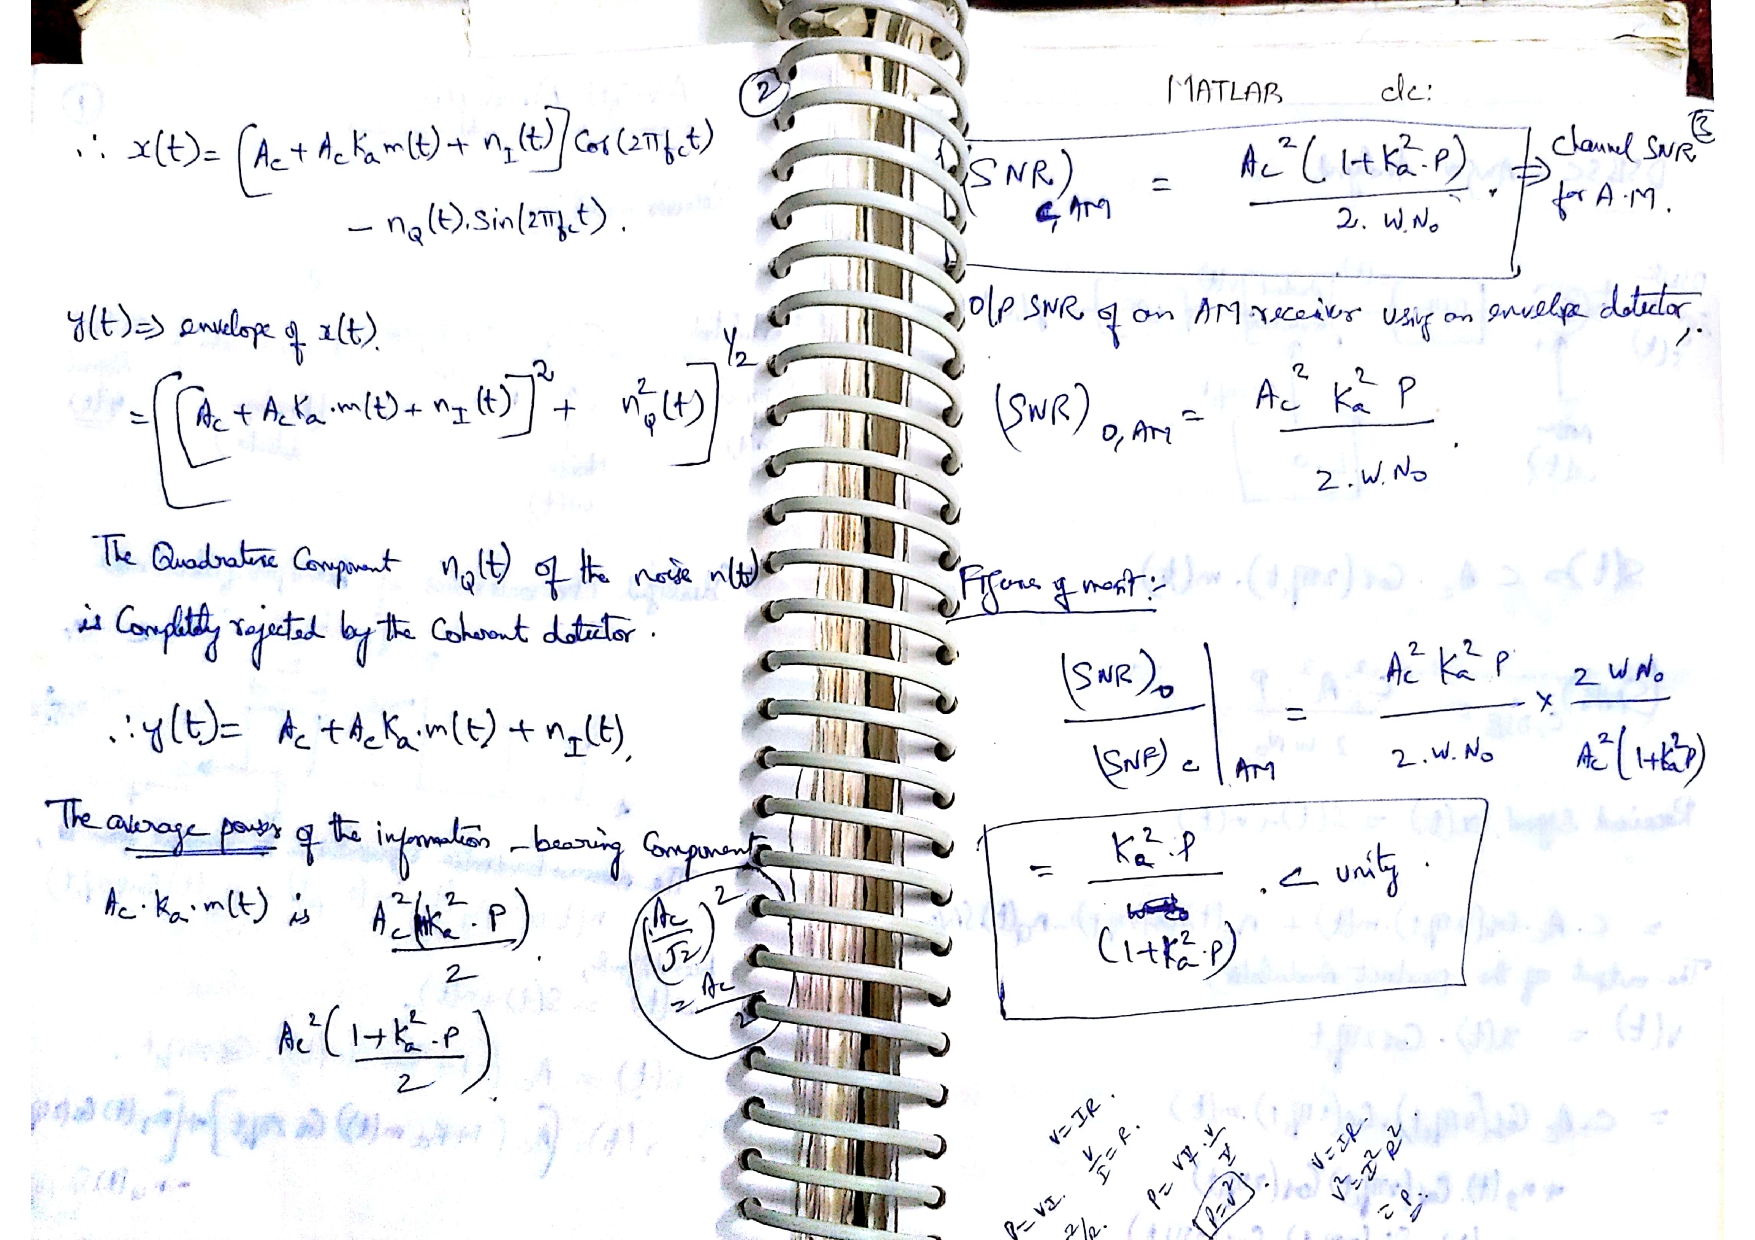 2
∴ x(t) = [Ac + Ac Ka m(t) + nI(t)] Cos(2πfct)
− nQ(t). Sin(2πfct).
y(t) ⇒ envelope of x(t).
= [[Ac + Ac Ka .m(t) + nI(t)]² + nQ²(t)]^1/2
The Quadrature Component nQ(t) of the noise n(t)
is Completely rejected by the Coherent detector.
∴ y(t) = Ac + Ac Ka .m(t) + nI(t).
The average power of the information - bearing Component
Ac . Ka . m(t) is Ac²(Ka² . P) / 2 .
(Ac / √2)²
= Ac / 2
Ac² (1 + Ka² . P / 2).
MATLAB dc:
3
(SNR)c, AM = Ac² (1 + Ka² . P) / 2. W. No . ⇒ Channel SNR
for A.M.
O/P SNR of an AM receiver using an envelope detector.
(SNR) O, AM = Ac² Ka² P / 2. W. No .
Figure of merit :-
(SNR)o / (SNR)c | AM = Ac² Ka² P / 2. W. No × 2 W No / Ac² (1+Ka² P)
= Ka² . P / (1 + Ka² . P) . < unity .
V = IR .
V / I = R .
P = VI .
P = VI . V / V
P = V² .
V = IR .
V² = I² R²
= P